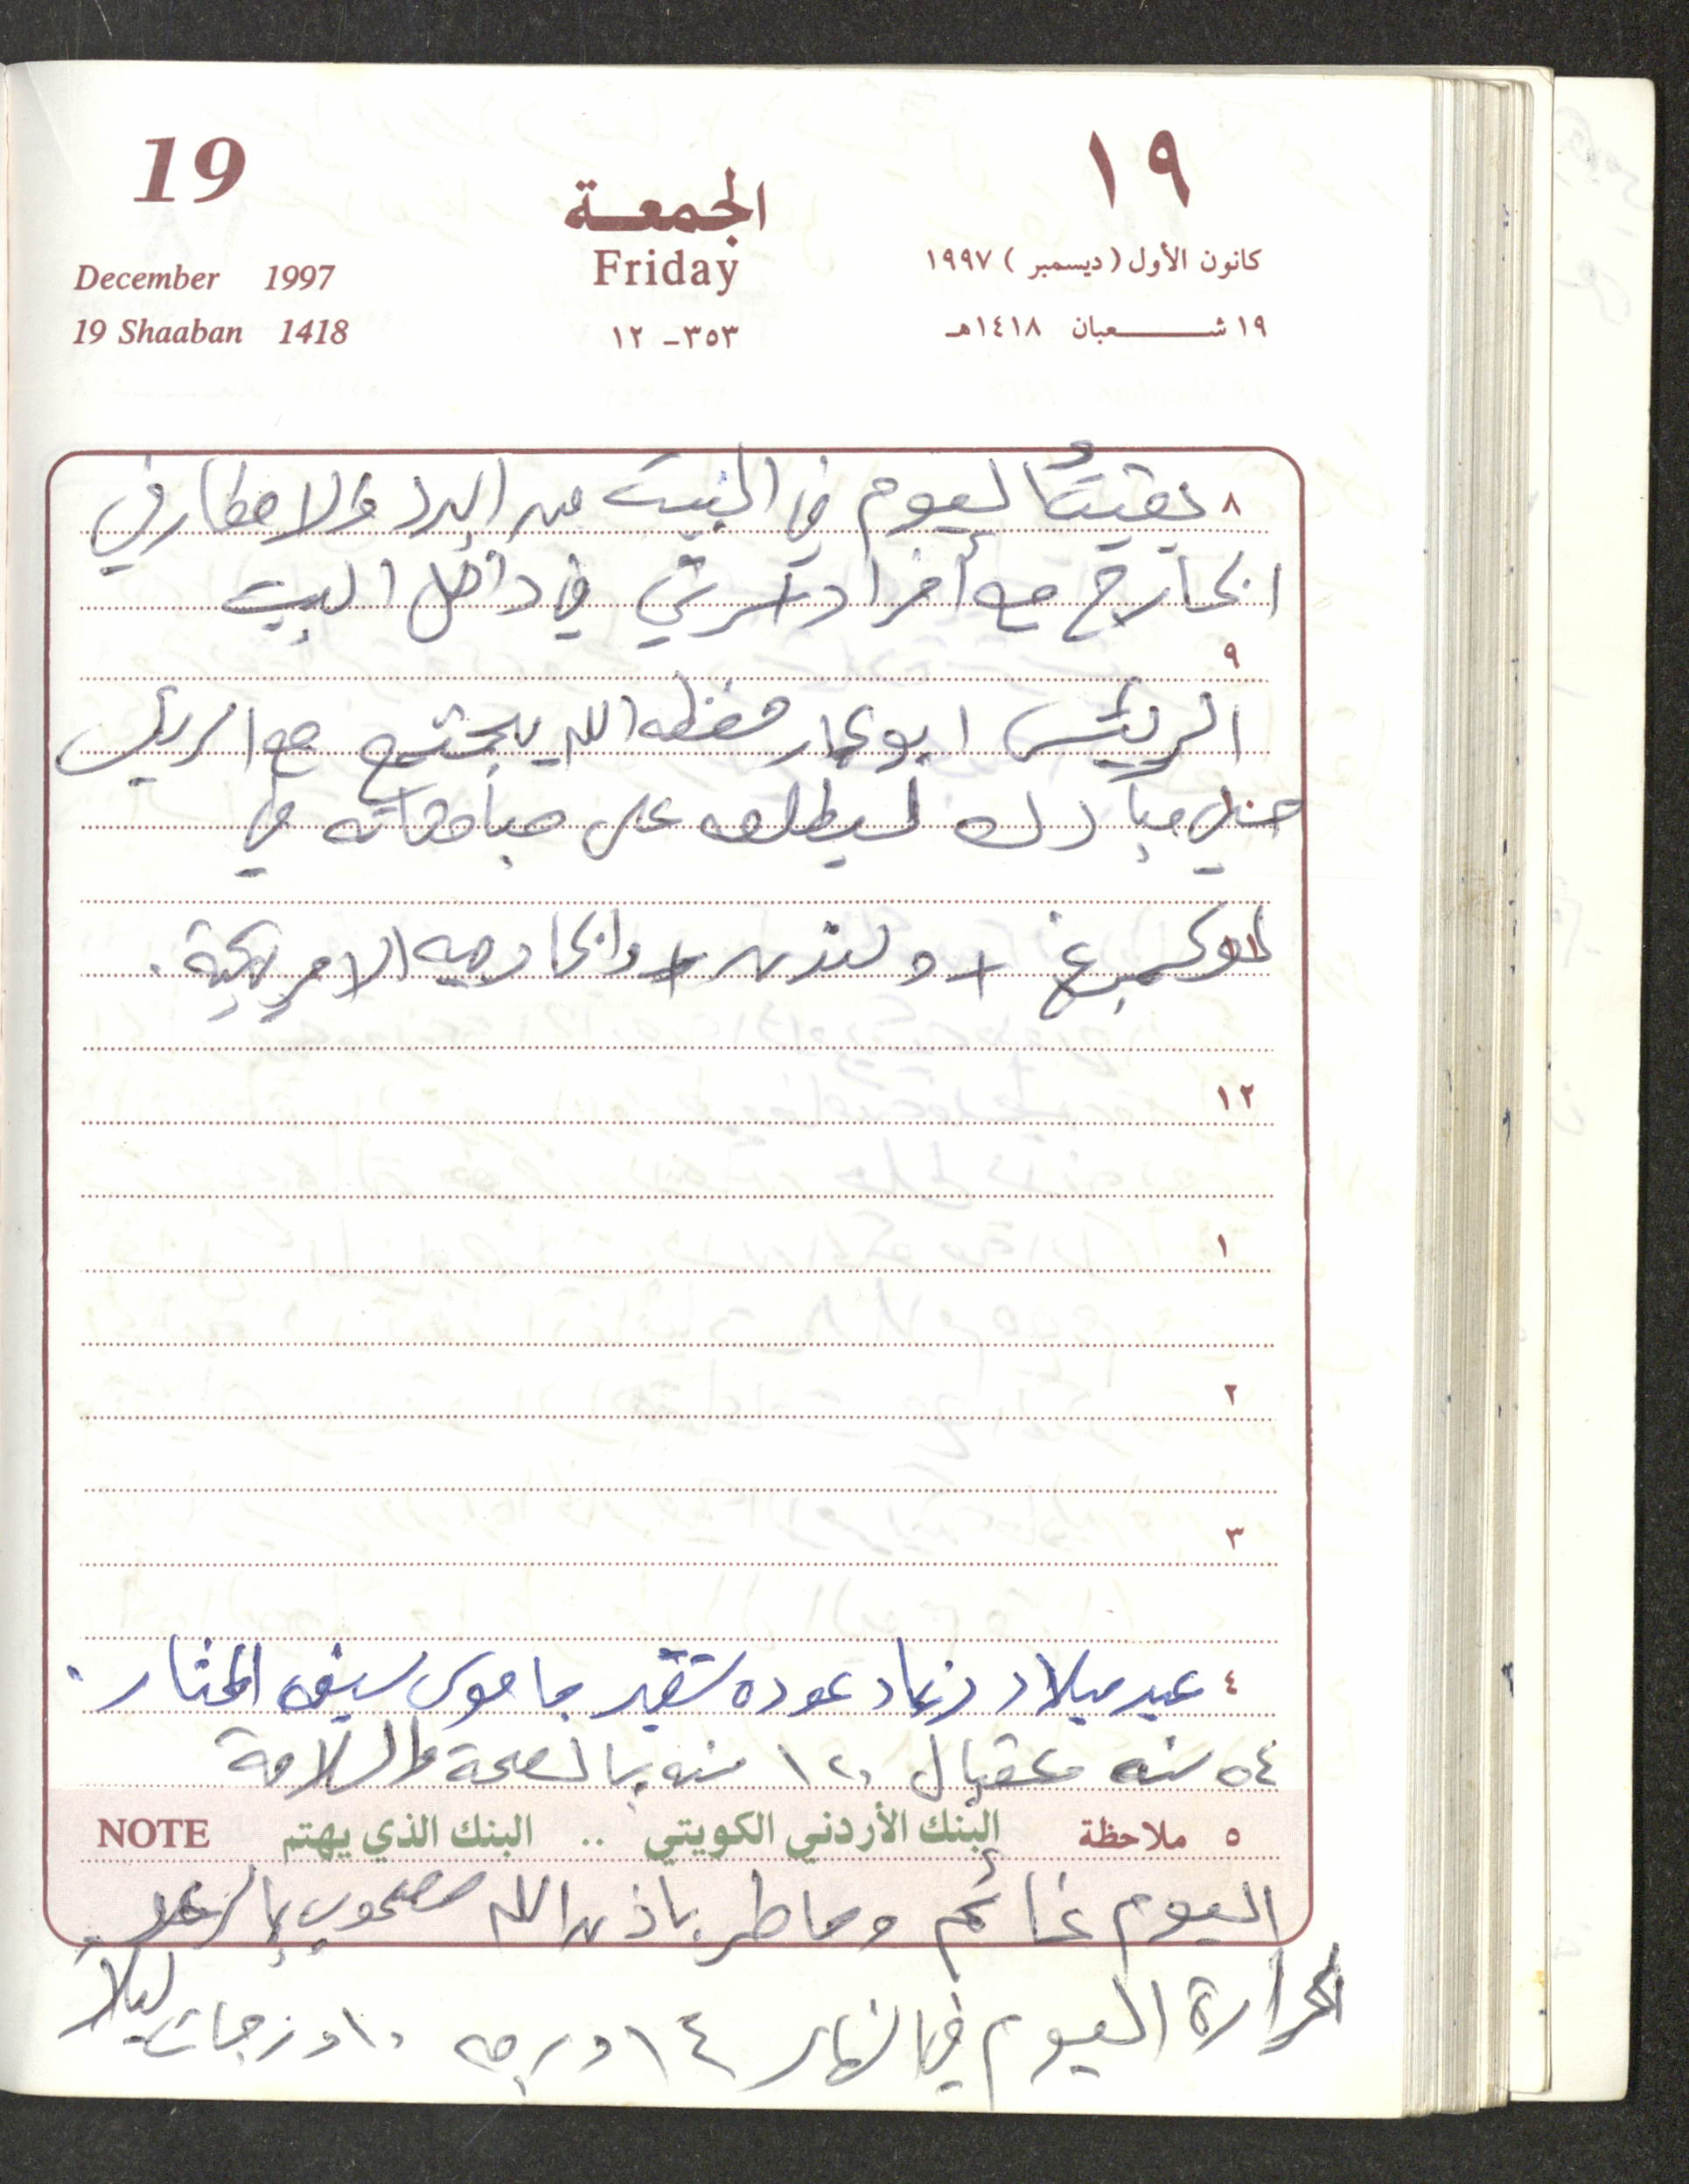 19
١٩
الجمعة
Friday
December 1997
كانون الأول (ديسمبر) ١٩٩٧
19 Shaaban 1418
١٢ -٣٥٣
١٩ شعبان ١٤١٨هـ
٨ بقيتُ اليوم في البيت من البرد والامطار في
الخارج مع أفراد اسرتي في داخل البيت
٩
الرئيس ابو عمار حفظه الله يجتمع مع الرئيس
حسني مبارك ليطلعه على مباحثاته في
لوكسمبرغ + ولندن + والخارجيه الامريكية.
١٢
١
٢
٣
٤ عيد ميلاد عوده شقير سيف المختار.
٥٤ سنه وعقبال ١٢٠ سنه بالصحة والسلامة
٥ ملاحظة البنك الأردني الكويتي .. البنك الذي يهتم NOTE
اليوم غائم وماطر باذن الله مصحوب بالرعد
الحرارة اليوم في النهار ١٤ درجه ١٠ درجات ليلاً